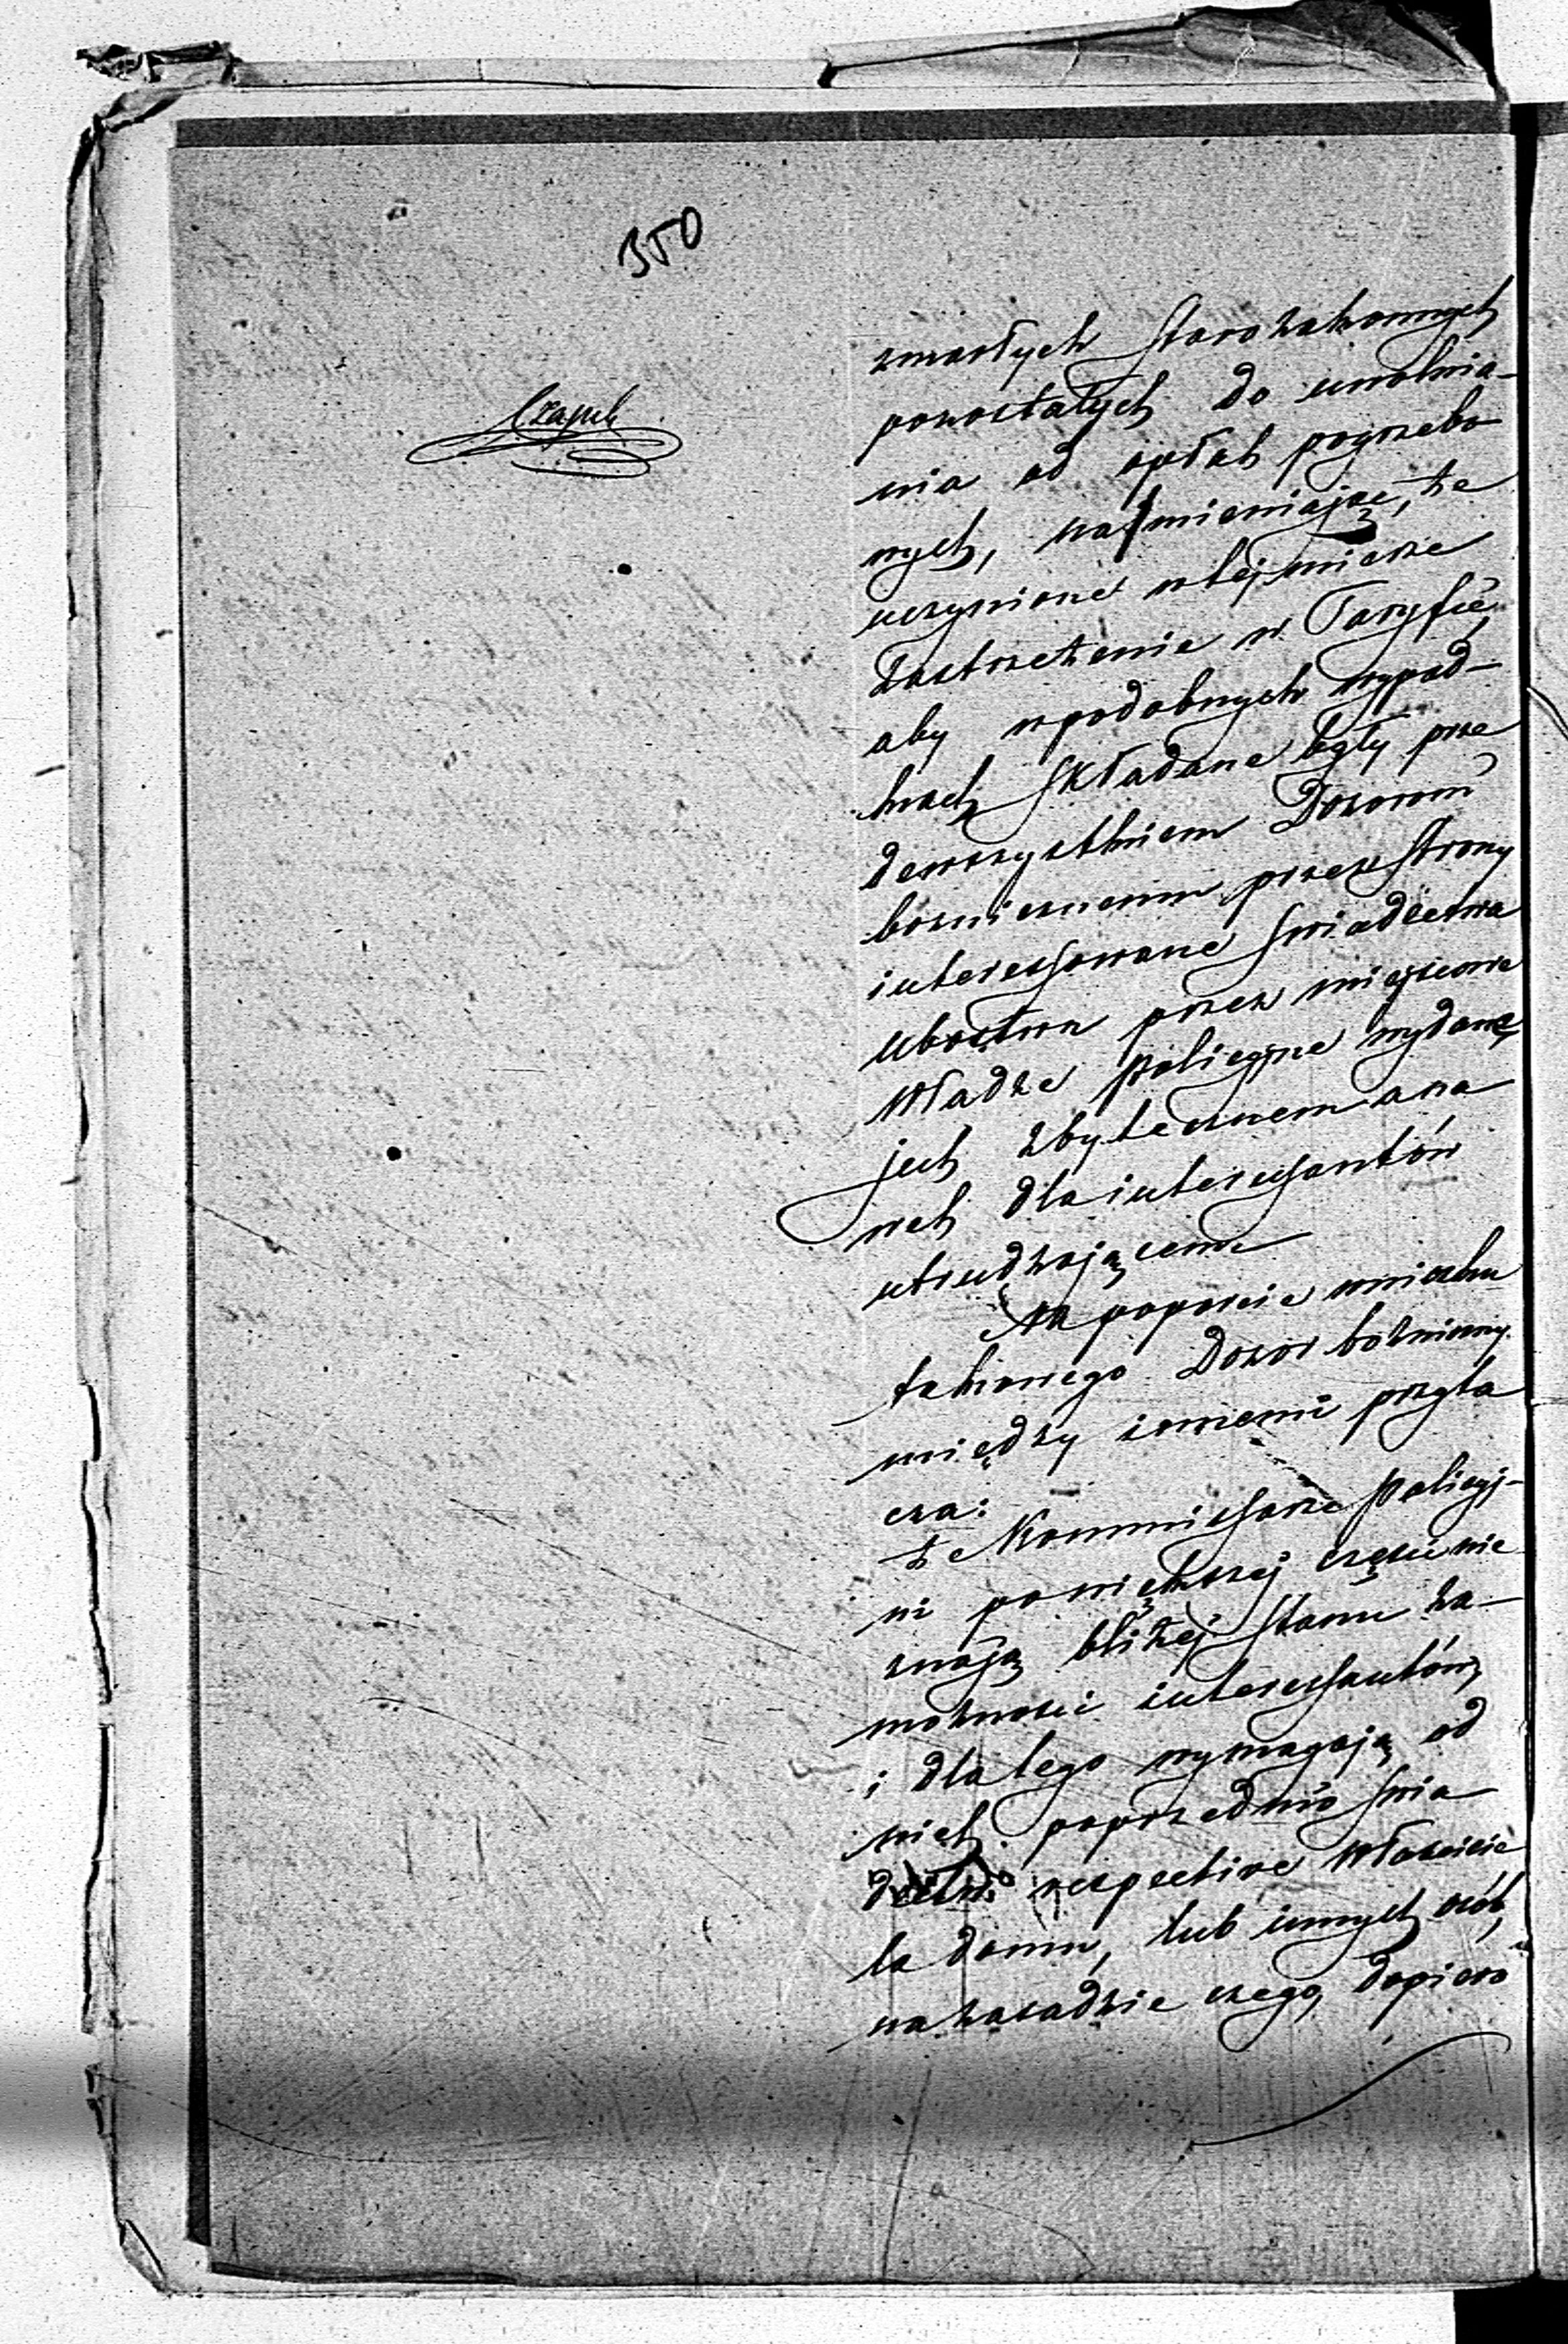 350
zmarłych Starozakonnych
pozostałych do uwolnia-
nia od opłat pogrzebo
wych, nadmieniając, że
uczynione w tej mierze
Zastrzeżenie w Taryfie,
aby w podobnych wypad-
kach Składane były prze
dewszystkiem Dozorom
bożniczym przez Strony
interessowane Swiadectwa
ubóstwa przez miejscowe
Władze Policyjne wydane,
jest zbytecznem a na
wet dla interessantów
utrudzającem
Na poparcie wniosku
takowego Dozór bożniczny
między innemi przyta
cza:
że Kommissarze Policyj-
ni po większej części nie
znają bliżej Stanu za-
możności interessantów,
i dla tego wymagają od
nich poprzednio Swia
dectw respective Właścicie
la domu, lub innych osób,
na zasadzie czego, dopiero